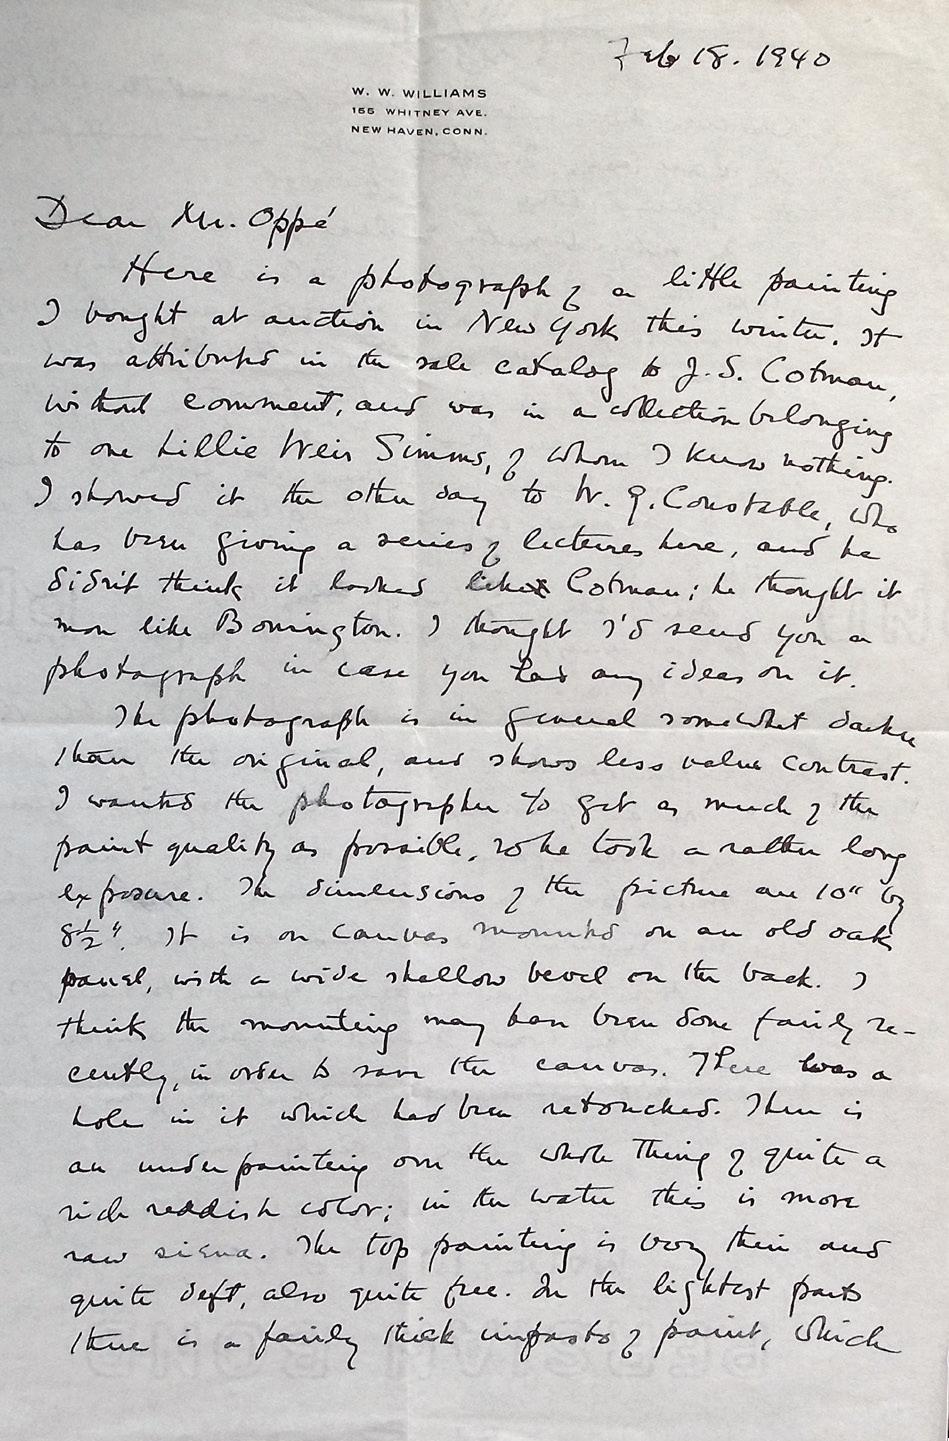 Feb 18. 1940
W. W. WILLIAMS
155 WHITNEY AVE.
NEW HAVEN, CONN.
Dear Mr. Oppé
Here is a photograph of a little painting
I bought at auction in New York this winter. It
was attributed in the sale catalog to J. S. Cotman,
without comment, and was in a collection belonging
to one Lillie Weir Simms, of whom I know nothing.
I showed it the other day to W. G. Constable, who
has been giving a series of lectures here, and he
didn't think it looked like Cotman; he thought it
more like Bonington. I thought I'd send you a
photograph in case you had any ideas on it.
The photograph is in general somewhat darker
than the original, and shows less value contrast.
I wanted the photographer to get as much of the
paint quality as possible, so he took a rather long
exposure. The dimensions of the picture are 10" by
8½". It is on canvas mounted on an old oak
panel, with a wide shallow bevel on the back. I
think the mounting may have been done fairly re-
cently, in order to save the canvas. There was a
hole in it which had been retouched. There is
an underpainting over the whole thing of quite a
rich reddish color; in the water this is more
raw siena. The top painting is very thin and
quite deft, also quite free. In the lightest parts
there is a fairly thick impasto of paint, which